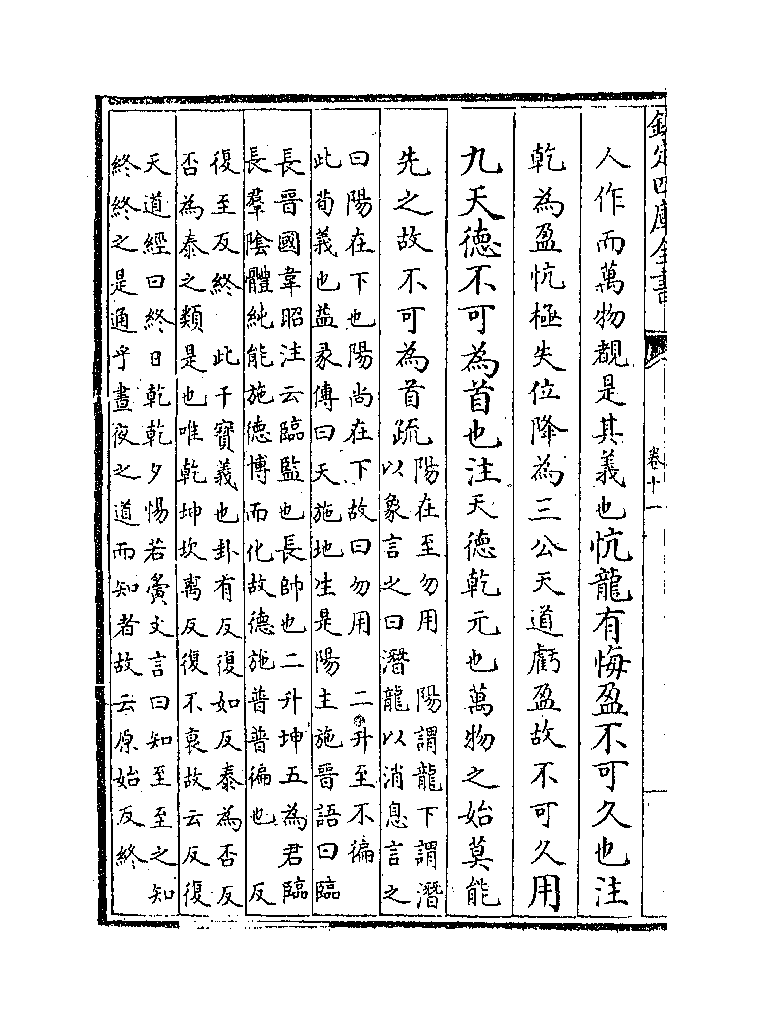 欽定四庫全書
卷十一
人作而萬物覩是其義也忼龍有悔盈不可久也注
乾為盈忼極失位降為三公天道虧盈故不可久用
九天德不可為首也注天德乾元也萬物之始莫能
先之故不可為首疏
陽在至勿用　陽謂龍下謂潛
以象言之曰潛龍以消息言之
曰陽在下也陽尚在下故曰勿用　二升至不徧
此荀義也葢彖傳曰天施地生是陽主施晉語曰臨
長晉國韋昭注云臨監也長帥也二升坤五為君臨
長羣陰體純能施德博而化故德施普普徧也　反
復至反終　此干寶義也卦有反復如反泰為否反
否為泰之類是也唯乾坤坎离反復不衰故云反復
天道經曰終日乾乾夕惕若夤文言曰知至至之知
終終之是通乎晝夜之道而知者故云原始反終